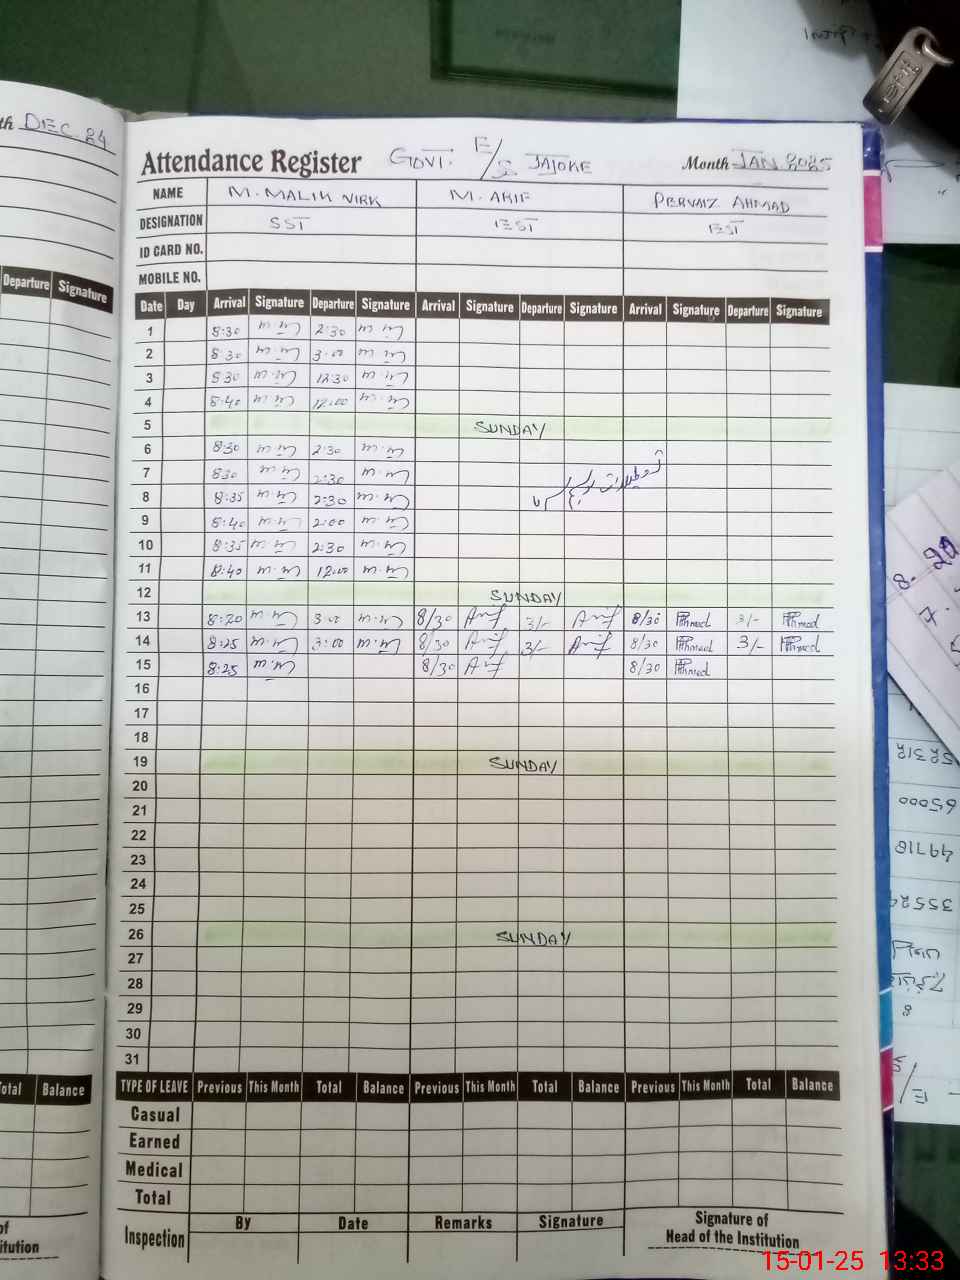 th DEC 24
Attendance Register GOVT: E/S JAJOKE Month JAN 2025
NAME M. MALIK VIRK M. ARIF PERVAIZ AHMAD
DESIGNATION SST EST EST
ID CARD NO.
MOBILE NO.
Departure Signature
Date Day Arrival Signature Departure Signature Arrival Signature Departure Signature Arrival Signature Departure Signature
1 8:30 2:30
2 8:30 3:00
3 8:30 12:30
4 8:40 12:00
5 SUNDAY
6 8:30 2:30
7 830 2:30
8 8:35 2:30
9 8:40 2:00
10 8:35 2:30
11 8:40 12:00
12 SUNDAY
13 8:20 3:00 8/30 Arif 3/- Arif 8/30 PAhmad 3/- PAhmad
14 8:25 3:00 8/30 Arif 3/- Arif 8/30 PAhmad 3/- PAhmad
15 8:25 8/30 Arif 8/30 PAhmad
16
17
18
19 SUNDAY
20
21
22
23
24
25
26 SUNDAY
27
28
29
30
31
otal Balance
TYPE OF LEAVE Previous This Month Total Balance Previous This Month Total Balance Previous This Month Total Balance
Casual
Earned
Medical
Total
Inspection By Date Remarks Signature Signature of
Head of the Institution
of
itution
65000
49718
15-01-25 13:33